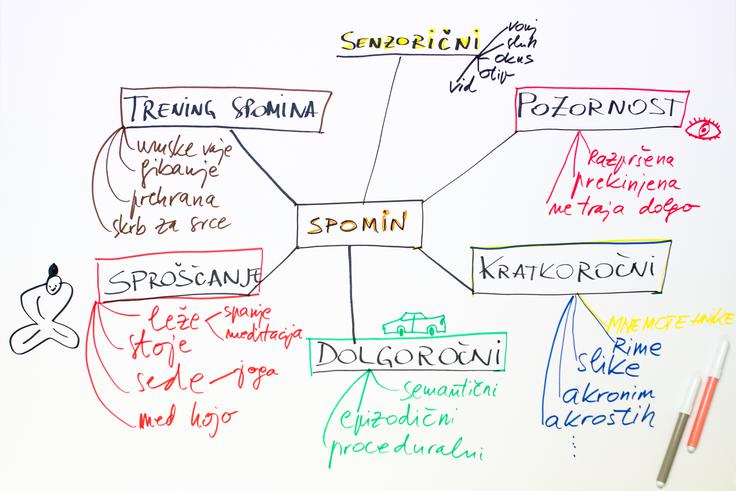 SENZORIČNI
vonj
sluh
okus
otip
vid
TRENING SPOMINA
umske vaje
gibanje
prehrana
skrb za srce
POZORNOST
Razpršena
prekinjena
ne traja dolgo
SPOMIN
SPROŠČANJE
leže
spanje
meditacija
stoje
sede
joga
med hojo
DOLGOROČNI
semantični
epizodični
proceduralni
KRATKOROČNI
MNEMOTEHNIKE
Rime
slike
akronim
akrostih
⋮